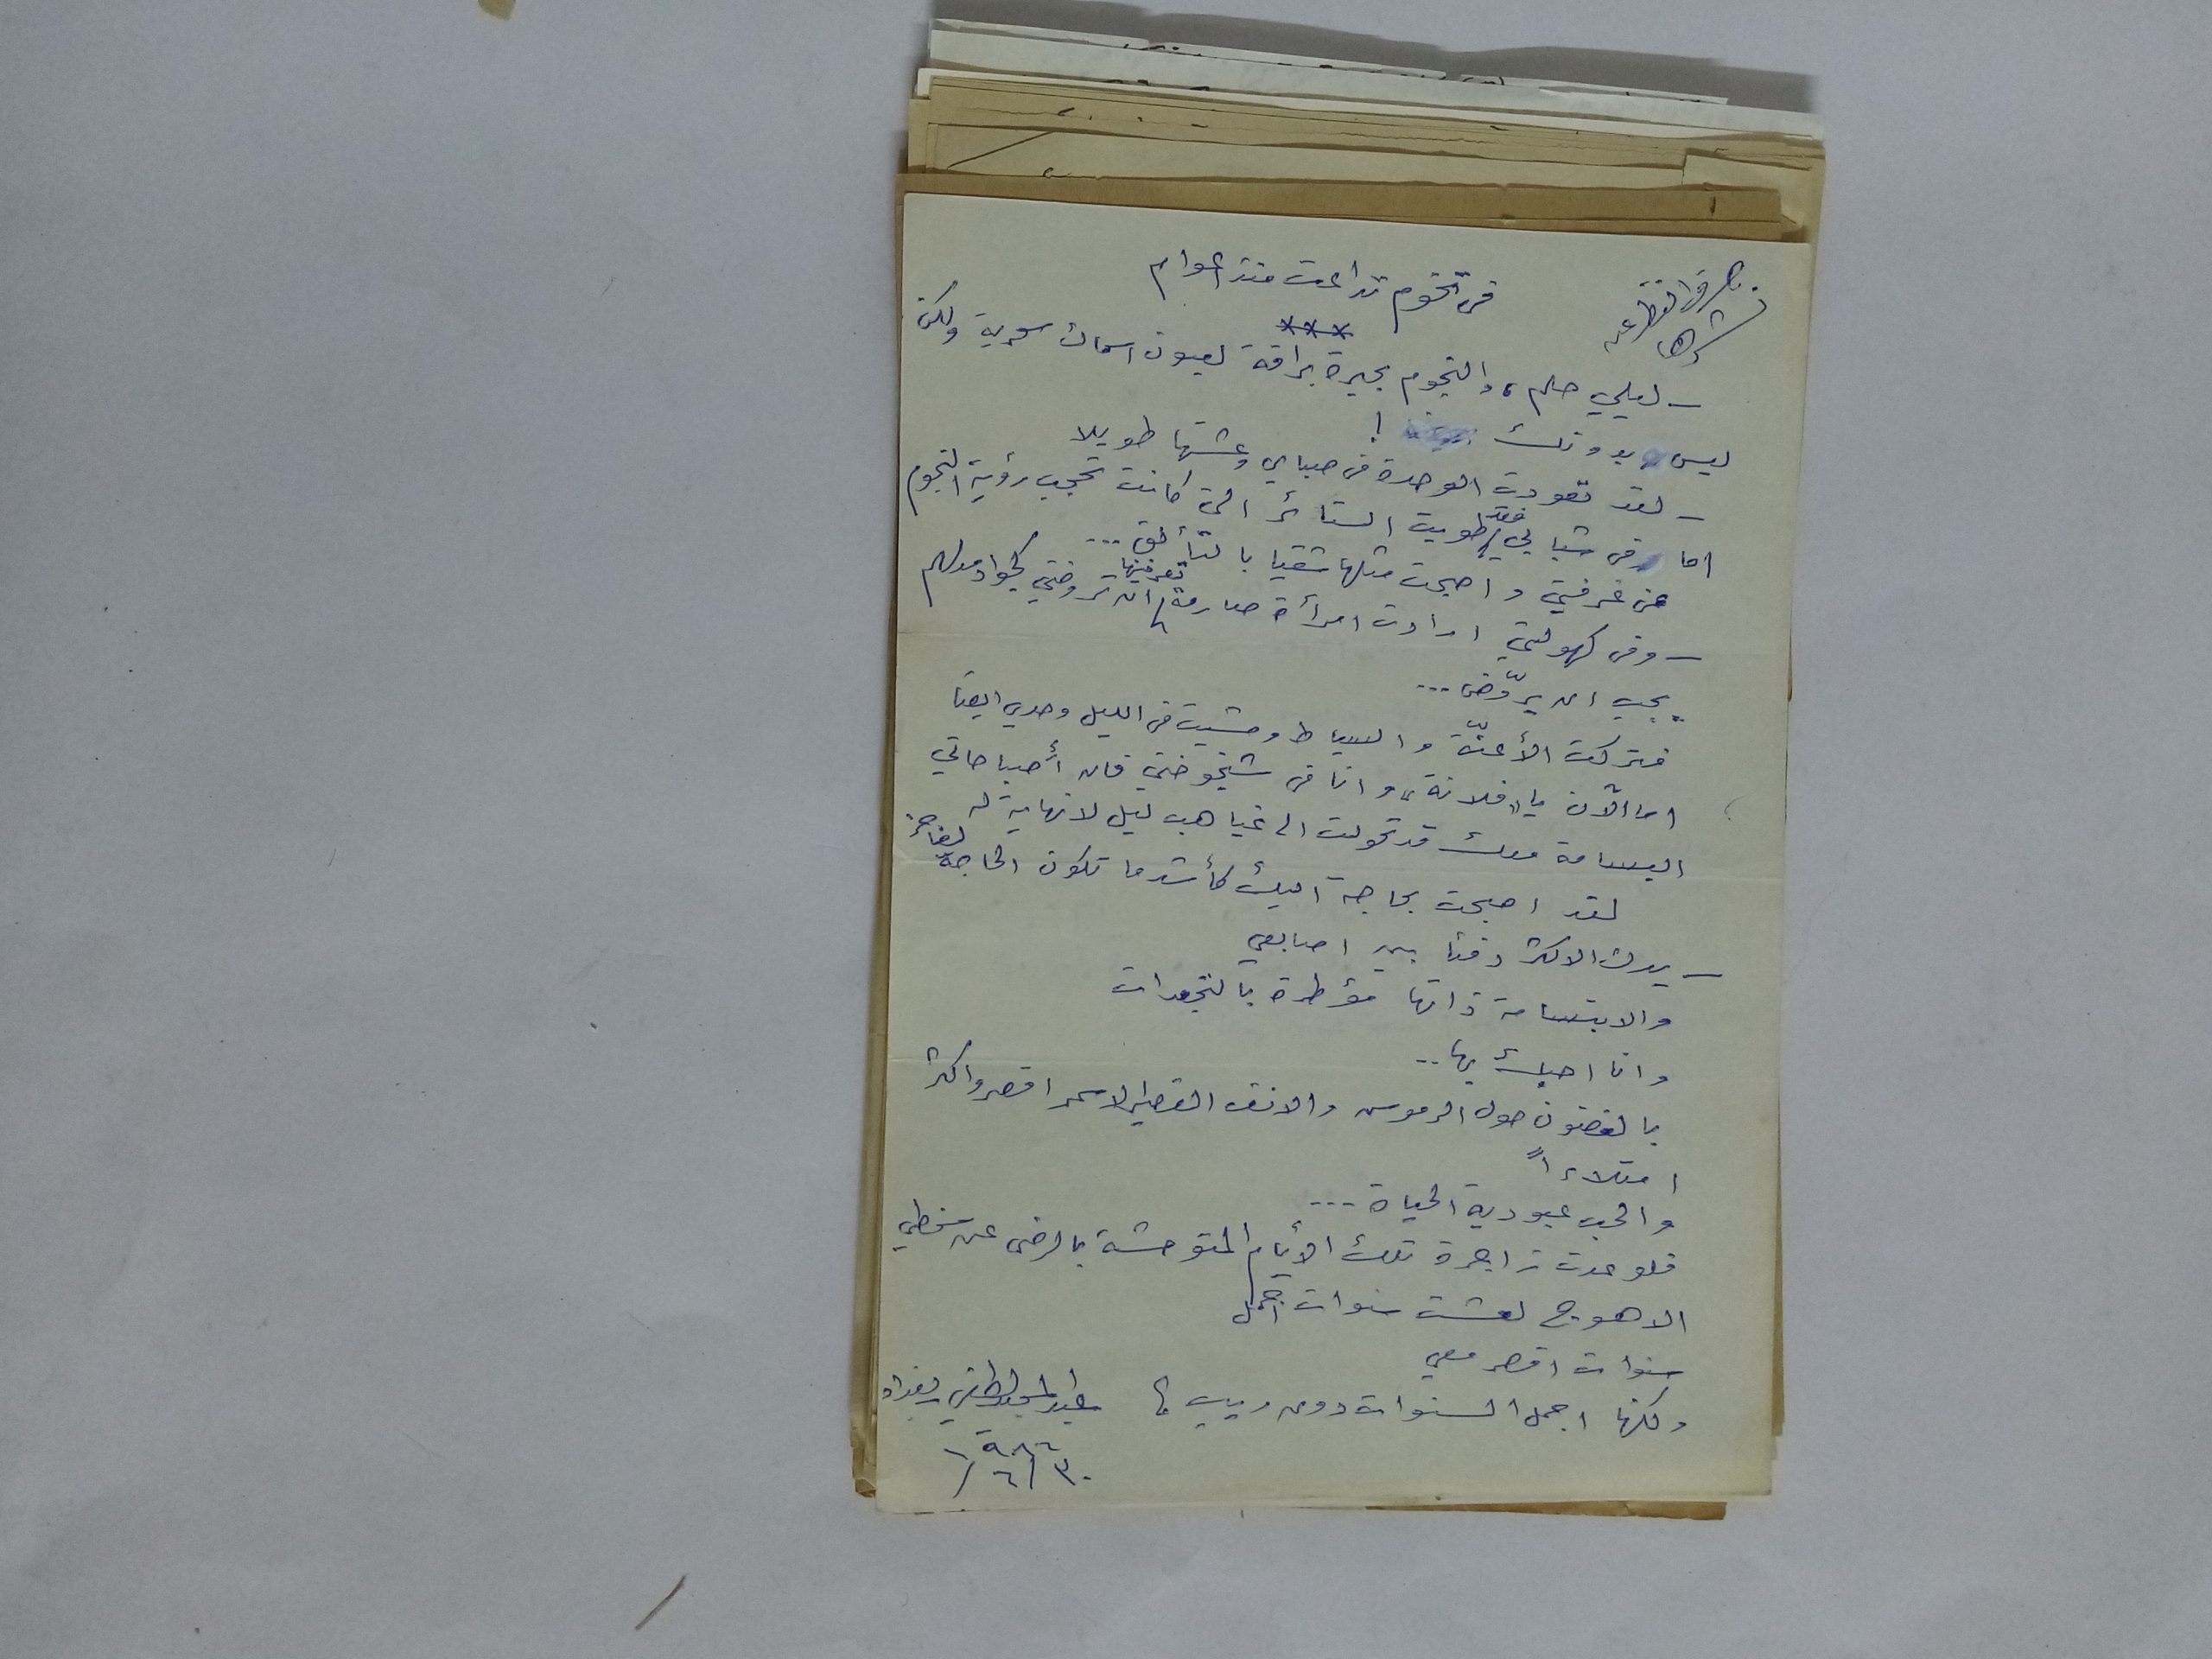 في تخوم تداعت منذ اعوام
صرف النظر عن
نشرها
***
ـ ليلي حلم، والنجوم بحيرة براقة لعيون اسماك سحرية ولكن
ليس بدونك !
ـ لقد تعودت الوحدة في صباي وعشتها طويلا
اما في شبابي فقد طويت الستائر التي كانت تحجب رؤية النجوم
عن غرفتي واصبحت مثلها شقيا بالتألق ...
ـ وفي كهولتي ارادت امرأة صارمة تعرفينها ان تروضني كجواد مدلهم
يجب ان يروّض ...
فتركت الأعنّة والسياط ومشيت في الليل وحدي ايضا
اما الآن يا "فلانة" وانا في شيخوختي فان أصباحاتي
البسامة معك قد تحولت الى غياهب ليل لا نهاية له
لقد اصبحت بحاجة اليك كأشد ما تكون الحاجة
ـ يدك الاكثر دفئا بين اصابعي
والابتسامة ذاتها مؤطرة بالتجعدات
وانا احبك بها ..
بالغضون حول الرموس والانف القصير الاسمر اقصر واكثر
امتلاءاً
والحب عبودية الحياة ...
فلو عدت زاجرة تلك الأيام المتوحشة بالرضى عن سخطي
الاهوج لعشت سنوات اجمل
سنوات اقصر معي
ولكنها اجمل السنوات دون ريب
عبد المجيد لطفي بغداد
٣٠/٦/١٩٨٦